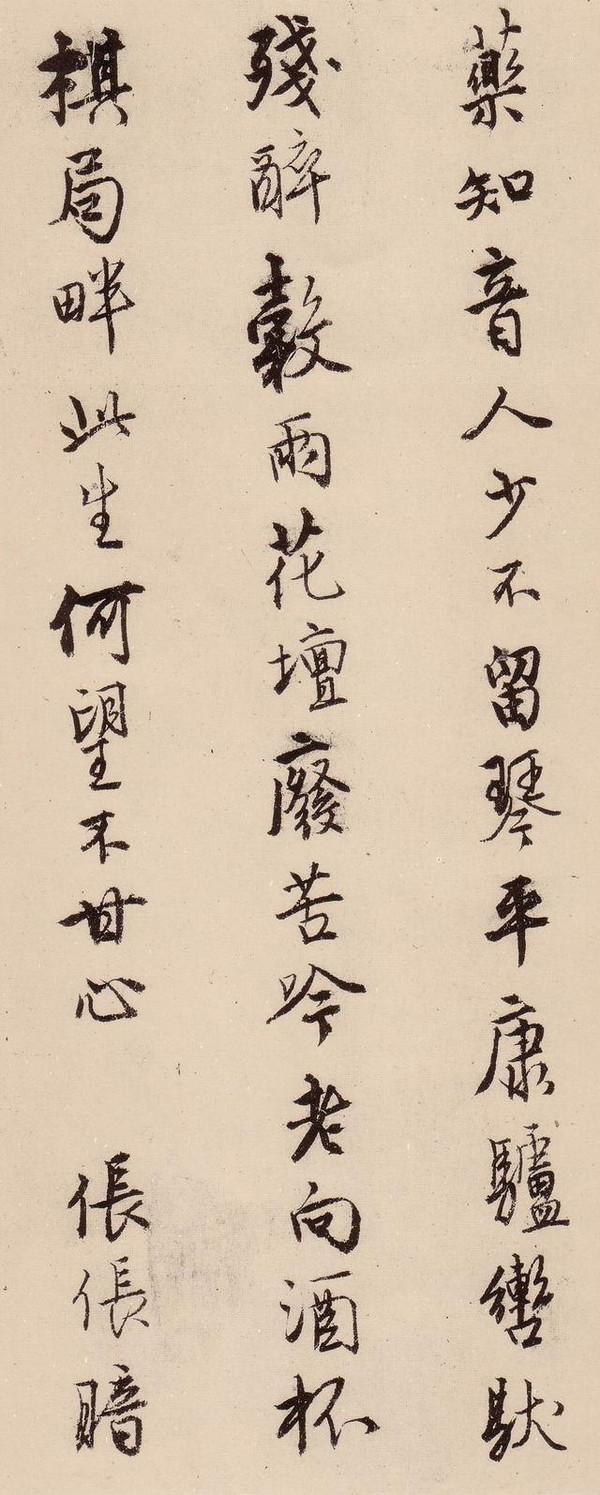 藥知音人少不留琴平康驢轡馱
殘醉穀雨花壇廢苦吟老向酒杯
棋局畔此生何望不甘心 倀倀暗